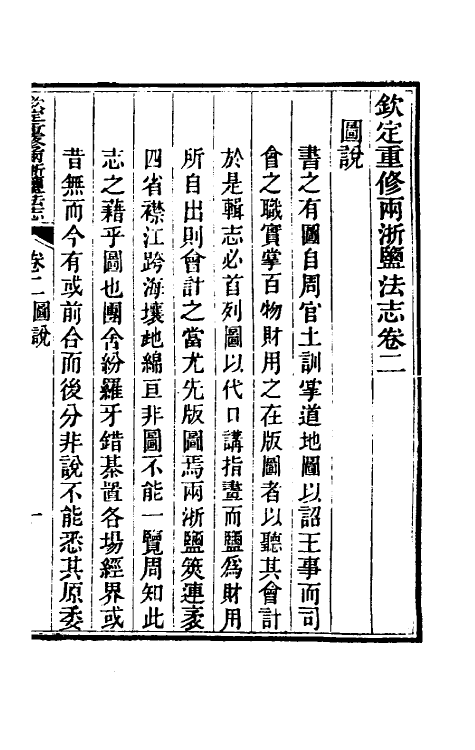 欽定重修兩浙鹽法志卷二
圖說
書之有圖自周官土訓掌道地圖以詔王事而司
會之職實掌百物財用之在版圖者以聽其會計
於是輯志必首列圖以代口講指畫而鹽爲財用
所自出則會計之當尤先版圖焉兩浙鹽筴連袤
四省襟江跨海壤地綿亘非圖不能一覽周知此
志之藉乎圖也團舍紛羅牙錯棊置各場經界或
昔無而今有或前合而後分非說不能悉其原委
欽定重修兩浙鹽法志 卷二 圖說 一